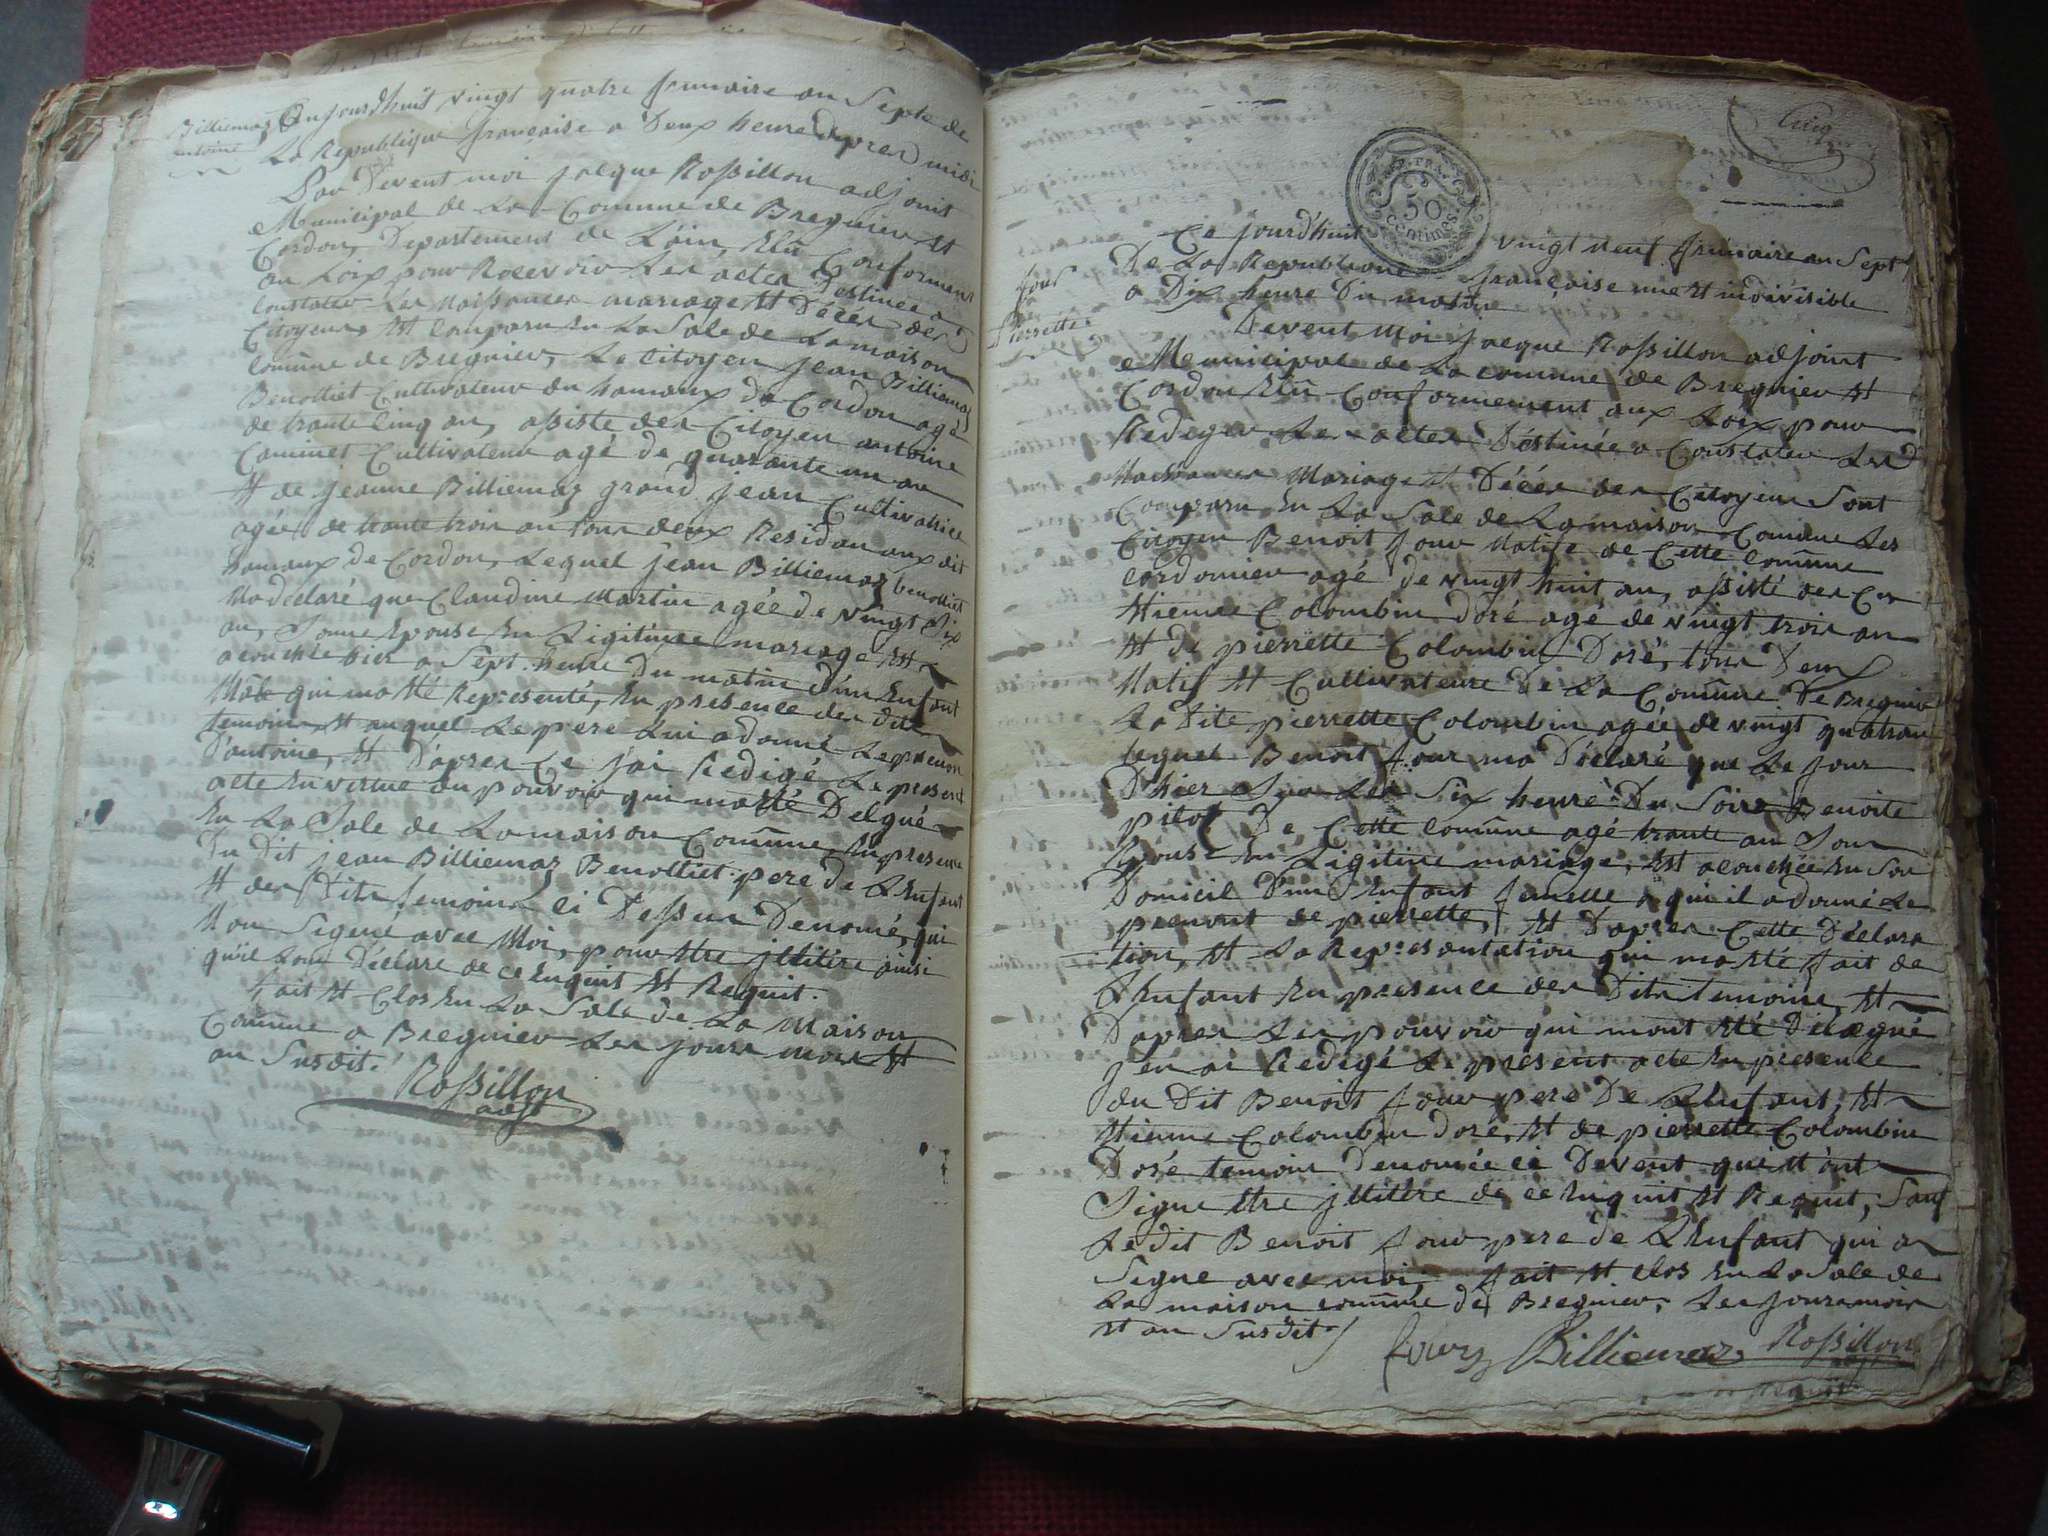 Billiemaz
antoine
Aujourdhuit vingt quatre frimaire an Sept de
La Republique françaoise a Deux heure dapres midi
Par Devent moi jacque Rossillon adjoint
Municipal de La Commune de Bregnier Et
Cordon, Departement de Lain, Elû Conforment
au Loix pour Recevoir Les actes Destinée a
Constater Les Naissances mariage Et Décès des
Citoyens, Est Comparu En La Sale de La maison
Comune de Bregnier, Le Citoyen jean Billiemaz
Benottiet Cultivateur du hamaux de Cordon agé
de trante Cinq an, assiste des Citoyen antoine
Caminet Cultivateur agé de quarante un an
Et de jeanne Billiemaz grand jean Cultivatrice
agée de trante trois an tous deux Residan aux dit
hamaux de Cordon, Lequel jean Billiemaz benottiet
Ma déclaré que Claudine Martin agée de vingt Six
an, Sonne Epouse En Ligitimee mariage Est
acouchee hier a Sept heure Du matin d'un Enfant
Mâle qui ma Eté Representé, En presence des dits
temoins Et auquel Le pere Lui a donné Le prenon
D'antoine, Et D'apres Ce j'ai Redigé Le present
acte En vertue du pouvoir qui ma Eté Delgué
En La Sale de La maison Comûne, En presence
Du Dit jean Billiemaz Benottiet pere de L'Enfant
Et des Dits temoins Ci Dessus Denomé, qui
Non Signé avec Moi, pour Etre jllitire ainsi
qu'il Lont Déclare de ce Enquis Et Requit.
fait Et Clos En La Sale de La Maison
Comûne a Bregnier Les jours mois Et
an Susdit.
Rossillon
adjt
Cinq
REP. FRA.
50
Centimes.
four
Pierrette
Ce jourd'huit vingt neuf frimaire an Sept
De La Republique françaoise une Et indivisible
a Dix heure Du matin
Devent Moi jacque Rossillon adjoint
Municipal de La comune de Bregnier Et
Cordon Elû Conformement aux Loix pour
Rediger Les actes Destinée a Constater Les
Naissances Mariage Et Décès des Citoyens Sont
Comparu En La Sale de La maison Comûne Les
Citoyen Benoit four Natife de Cette Comûne
Cordonnier agé de vingt huit an, assisté des Cen
Etienne Colombin doré agé de vingt trois an
Et de pierrette Colombin Doré, tous Deux
Natif Et Cultivateurs De La Comûne De Bregnier
La Dite pierrette Colombin agée de vingt quatre an
Lequel Benoit four ma Déclaré que Le jour
D'hier Sur Les Six heure Du Soire Benoite
pitot De Cette Comûne agé trante an Son
Epouse En Ligitime mariage, Est acouchée En Son
Domicil D'un Enfant femelle a qui il a donné Le
prenont de pierrette, Et D'apres Cette Déclara
tion, Et La Representation qui ma Eté fait de
L'Enfant En presence des Dits temoins, Et
D'apres Les pouvoir qui mont Eté Délegué
j'en ai Redigé Le present acte En presence
du Dit Benoit four pere De L'Enfant, Et
Etienne Colombin doré, Et de pierrette Colombin
Doré temoins Denomée ci Devent qui n'ont
Signe Etre jllitére de ce Enquis Et Requit, Sauf
Ledit Benoit four pere de L'Enfant qui a
Signe avec moi, fait Et clos En La Sale de
La maison comûne de Bregnier, Les jours mois
Et an Susdit
fourz Billiemaz Rossillon